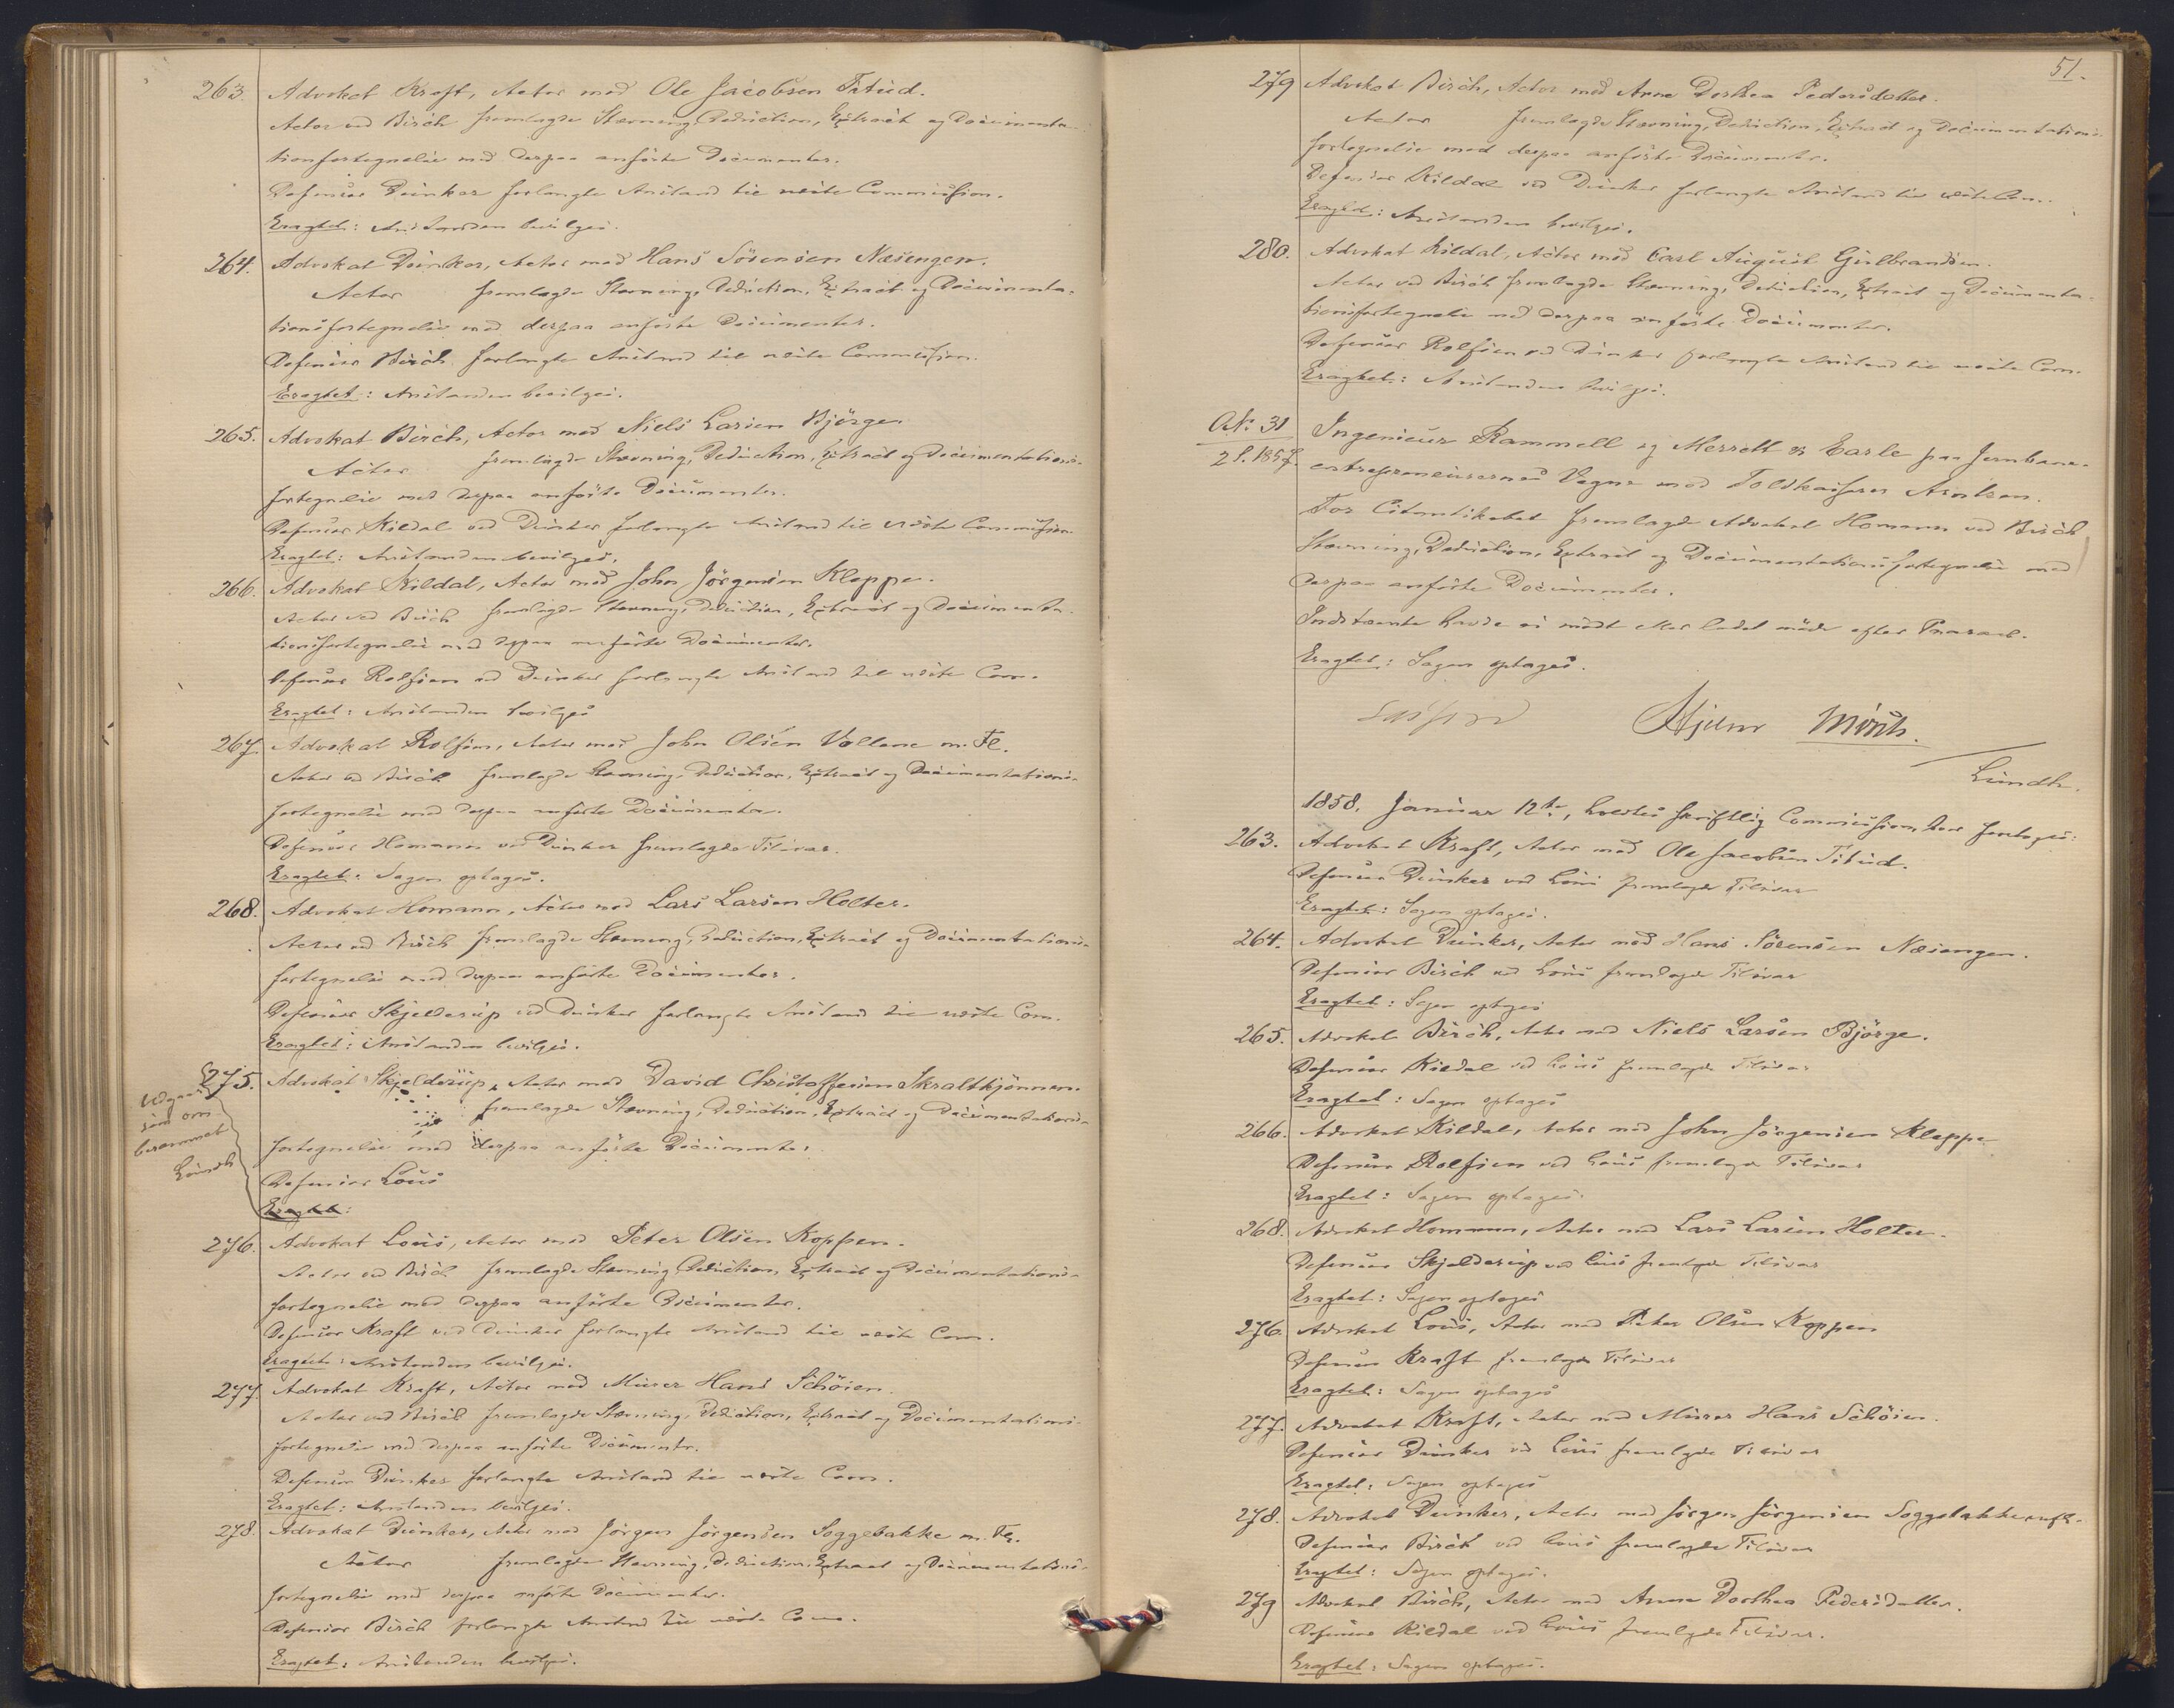 263. Advokat Kraft, Actor mod Ole Jacobsen Titud.
Actor ved Birch fremlagde Stevning, Deduction, Extract og Documenta-
tionsfortegnelse med derpaa anførte Documenter.
Defensor Dunker forlangte Anstand til næste Commission.
Eragtet: Anstanden bevilges.
264. Advokat Dunker, Actor mod Hans Sörensen Næsengen.
Actor fremlagde Stevning, Deduction, Extract og Documenta-
tionsfortegnelse med derpaa anførte Documenter.
Defensor Birch forlangte Anstand til næste Commission.
Eragtet: Anstanden bevilges.
265. Advokat Birch, Actor mod Niels Larsen Björge
Actor fremlagde Stevning, Deduction, Extract og Documentations-
fortegnelse med derpaa anførte Documenter.
Defensor Kildal ved Dunker forlangte Anstand til næste Commission.
Eragtet: Anstanden bevilges.
266. Advokat Kildal, Actor mod John Jörgensen Kleppe.
Actor ved Birch fremlagde Stevning, Deduction, Extract og Documenta-
tionsfortegnelse med derpaa anførte Documenter.
Defensor Rolfsen ved Dunker forlangte Anstand til næste Com.
Eragtet: Anstanden bevilges
267. Advokat Rolfsen, Actor mod John Olsen Vollene m. Fl.
Actor ved Birch fremlagde Stevning, Deduction, Extract og Documentations-
fortegnelse med derpaa anførte Documenter.
Defensor Homann ved Dunker fremlagde Tilsvar.
Eragtet: Sagen optages.
268. Advokat Homann, Actor mod Lars Larsen Holter.
Actor ved Birch fremlagde Stevning, Deduction, Extract og Documentations-
fortegnelse med derpaa anførte Documenter.
Defensor Skjelderup ved Dunker forlangte Anstand til næste Com.
Eragtet: Anstanden bevilges.
275. Advokat Skjelderup, Actor mod David Christoffersen Skraltkjönnen.
Udgaaer
som om
berammet
Lundh
fremlagde Stevning, Deduction, Extract og Documentations-
fortegnelse med derpaa anførte Documenter
Defensor Lous
Eragtet:
276. Advokat Lous, Actor mod Peter Olsen Koppen.
Actor ved Birch fremlagde Stevning, Deduction, Extract og Documentations-
fortegnelse med derpaa anførte Documenter.
Defensor Kraft ved Dunker forlangte Anstand til næste Com.
Eragtet: Anstanden bevilges.
277. Advokat Kraft, Actor mod Murer Hans Schöien.
Actor ved Birch fremlagde Stevning, Deduction, Extract og Documentations-
fortegnelse med derpaa anførte Documenter.
Defensor Dunker forlangte Anstand til næste Com.
Eragtet: Anstanden bevilges.
278. Advokat Dunker, Actor mod Jörgen Jörgensen Soggebakke m. Fl.
Actor fremlagde Stevning, Deduction, Extract og Documentations-
fortegnelse med derpaa anførte Documenter.
Defensor Birch forlangte Anstand til næste Com.
Eragtet: Anstanden bevilges.
51.
279 Advokat Birch, Actor mod Anne Dorthea Pedersdatter.
Actor fremlagde Stevning, Deduction, Extract og Documentations-
fortegnelse med derpaa anførte Documenter.
Defensor Kildal ved Dunker forlangte Anstand til næste Com.
Eragtet: Anstanden bevilges.
280. Advokat Kildal, Actor mod Carl August Gulbrandsen.
Actor ved Birch fremlagde Stevning, Deduction, Extract og Documenta-
tionsfortegnelse med derpaa anførte Documenter.
Defensor Rolfsen ved Dunker forlangte Anstand til næste Com.
Eragtet: Anstanden bevilges.
A.N. 31
2 S. 1857. Ingenieur Rammell og Merrett & Earle paa Jernbane-
entrepreneurernes Vegne mod Toldkasserer Arntzen.
For Citantskabet fremlagde Advokat Homann ved Birch
Stevning, Deduction, Extract og Documentationsfortegnelse med
derpaa anførte Documenter.
Indstevnte havde ei mødt eller ladet møde efter Paaraab.
Eragtet: Sagen optages.
Hjelm Münch.
Lundh.
1858. Januar 12te, holdtes skriftlig Commission, hvor foretoges:
263. Advokat Kraft, Actor mod Ole Jacobsen Titud.
Defensor Dunker ved Lous fremlagde Tilsvar
Eragtet: Sagen optages.
264. Advokat Dunker, Actor mod Hans Sörensen Næsengen.
Defensor Birch ved Lous fremlagde Tilsvar
Eragtet: Sagen optages
265. Advokat Birch, Actor mod Niels Larsen Björge.
Defensor Kildal ved Lous fremlagde Tilsvar
Eragtet: Sagen optages
266. Advokat Kildal, Actor mod John Jörgensen Kleppe
Defensor Rolfsen ved Lous fremlagde Tilsvar
Eragtet: Sagen optages.
268. Advokat Homann, Actor mod Lars Larsen Holter.
Defensor Skjelderup ved Lous fremlagde Tilsvar
Eragtet: Sagen optages
276. Advokat Lous, Actor mod Peter Olsen Koppen
Defensor Kraft fremlagde Tilsvar
Eragtet: Sagen optages
277. Advokat Kraft, Actor mod Murer Hans Schöien.
Defensor Dunker ved Lous fremlagde Tilsvar
Eragtet: Sagen optages
278. Advokat Dunker, Actor mod Jörgen Jörgensen Soggebakke m. Fl.
Defensor Birch ved Lous fremlagde Tilsvar
Eragtet: Sagen optages.
279 Advokat Birch, Actor mod Anne Dorthea Pedersdatter.
Defensor Kildal ved Lous fremlagde Tilsvar.
Eragtet: Sagen optages.